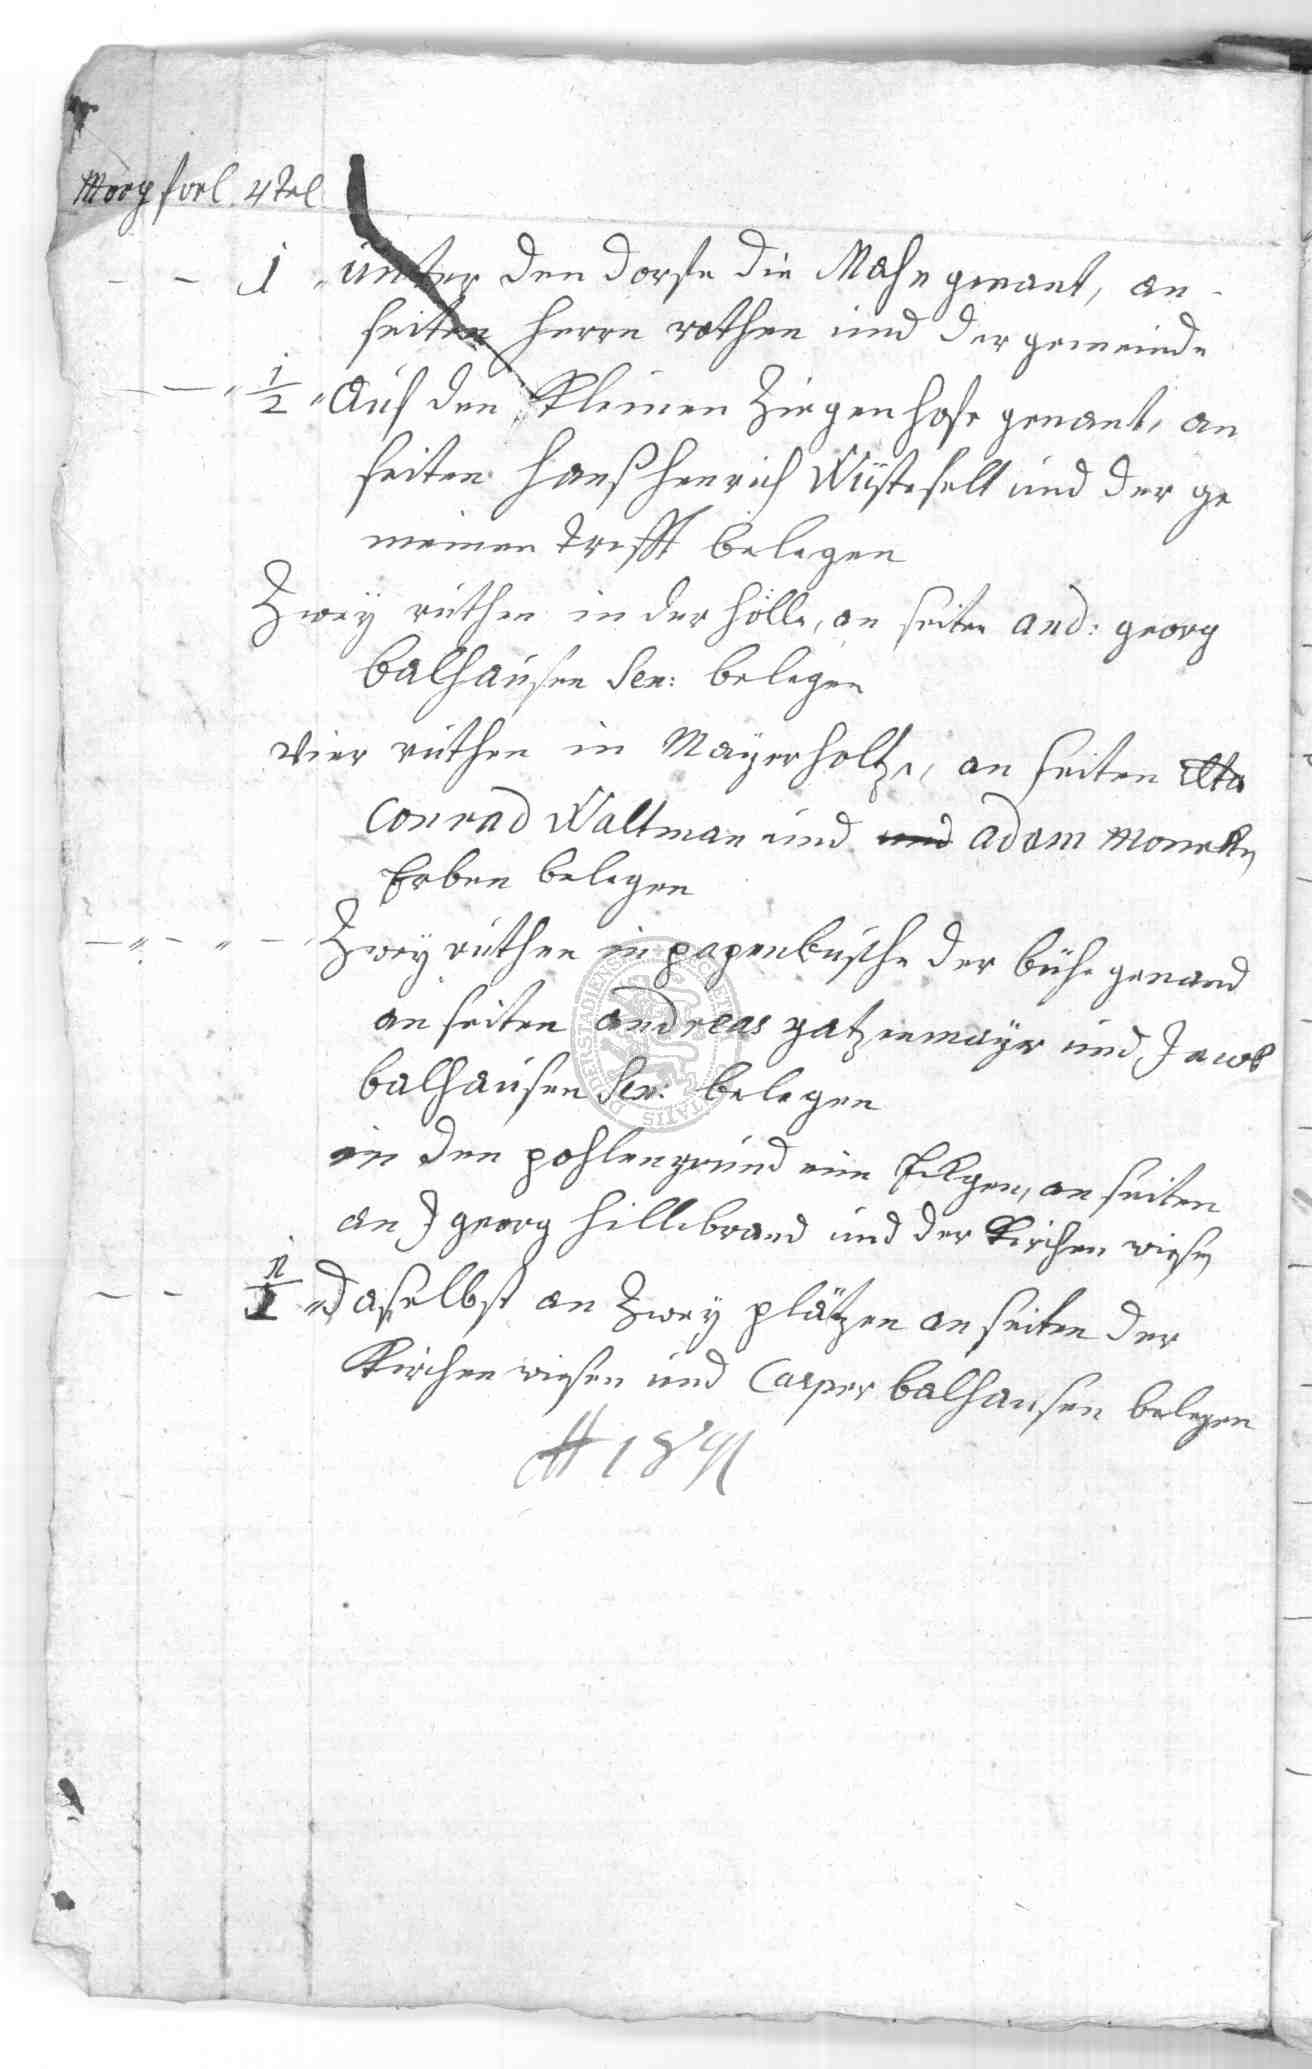 Morg forl. 4tel
- - 1 " unter den dorfe die Mase genant, an
seiten herrn rothen und der gemeinde
- - " 1/2 " Auf den Kleinen Ziegenhofe genant, an
seiten Hanß Henrich Wüstefelt und der ge
meinen trifft belegen
Zweÿ ruthen in der hölle, an seiten And: georg
balhausen Sen: belegen
Vier ruthen in Maÿerholtze, an seiten
Conrad Waltman und und adam
Erben belegen
- " - " - Zweÿ ruthen in papenbusche der bühe genand
an seiten andreas gatzemaÿr und Jacob
balhausen Sen: belegen
in den pohlengrund ein Eckgen, an seiten
an J georg hillebrand und der Kirchen wiesen
- - 1 " daselbst an Zweÿ plätzen an seiten der
Kirchen wiesen und Casper balhausen belegen
DUDERSTADIENSIS SOCIETATIS